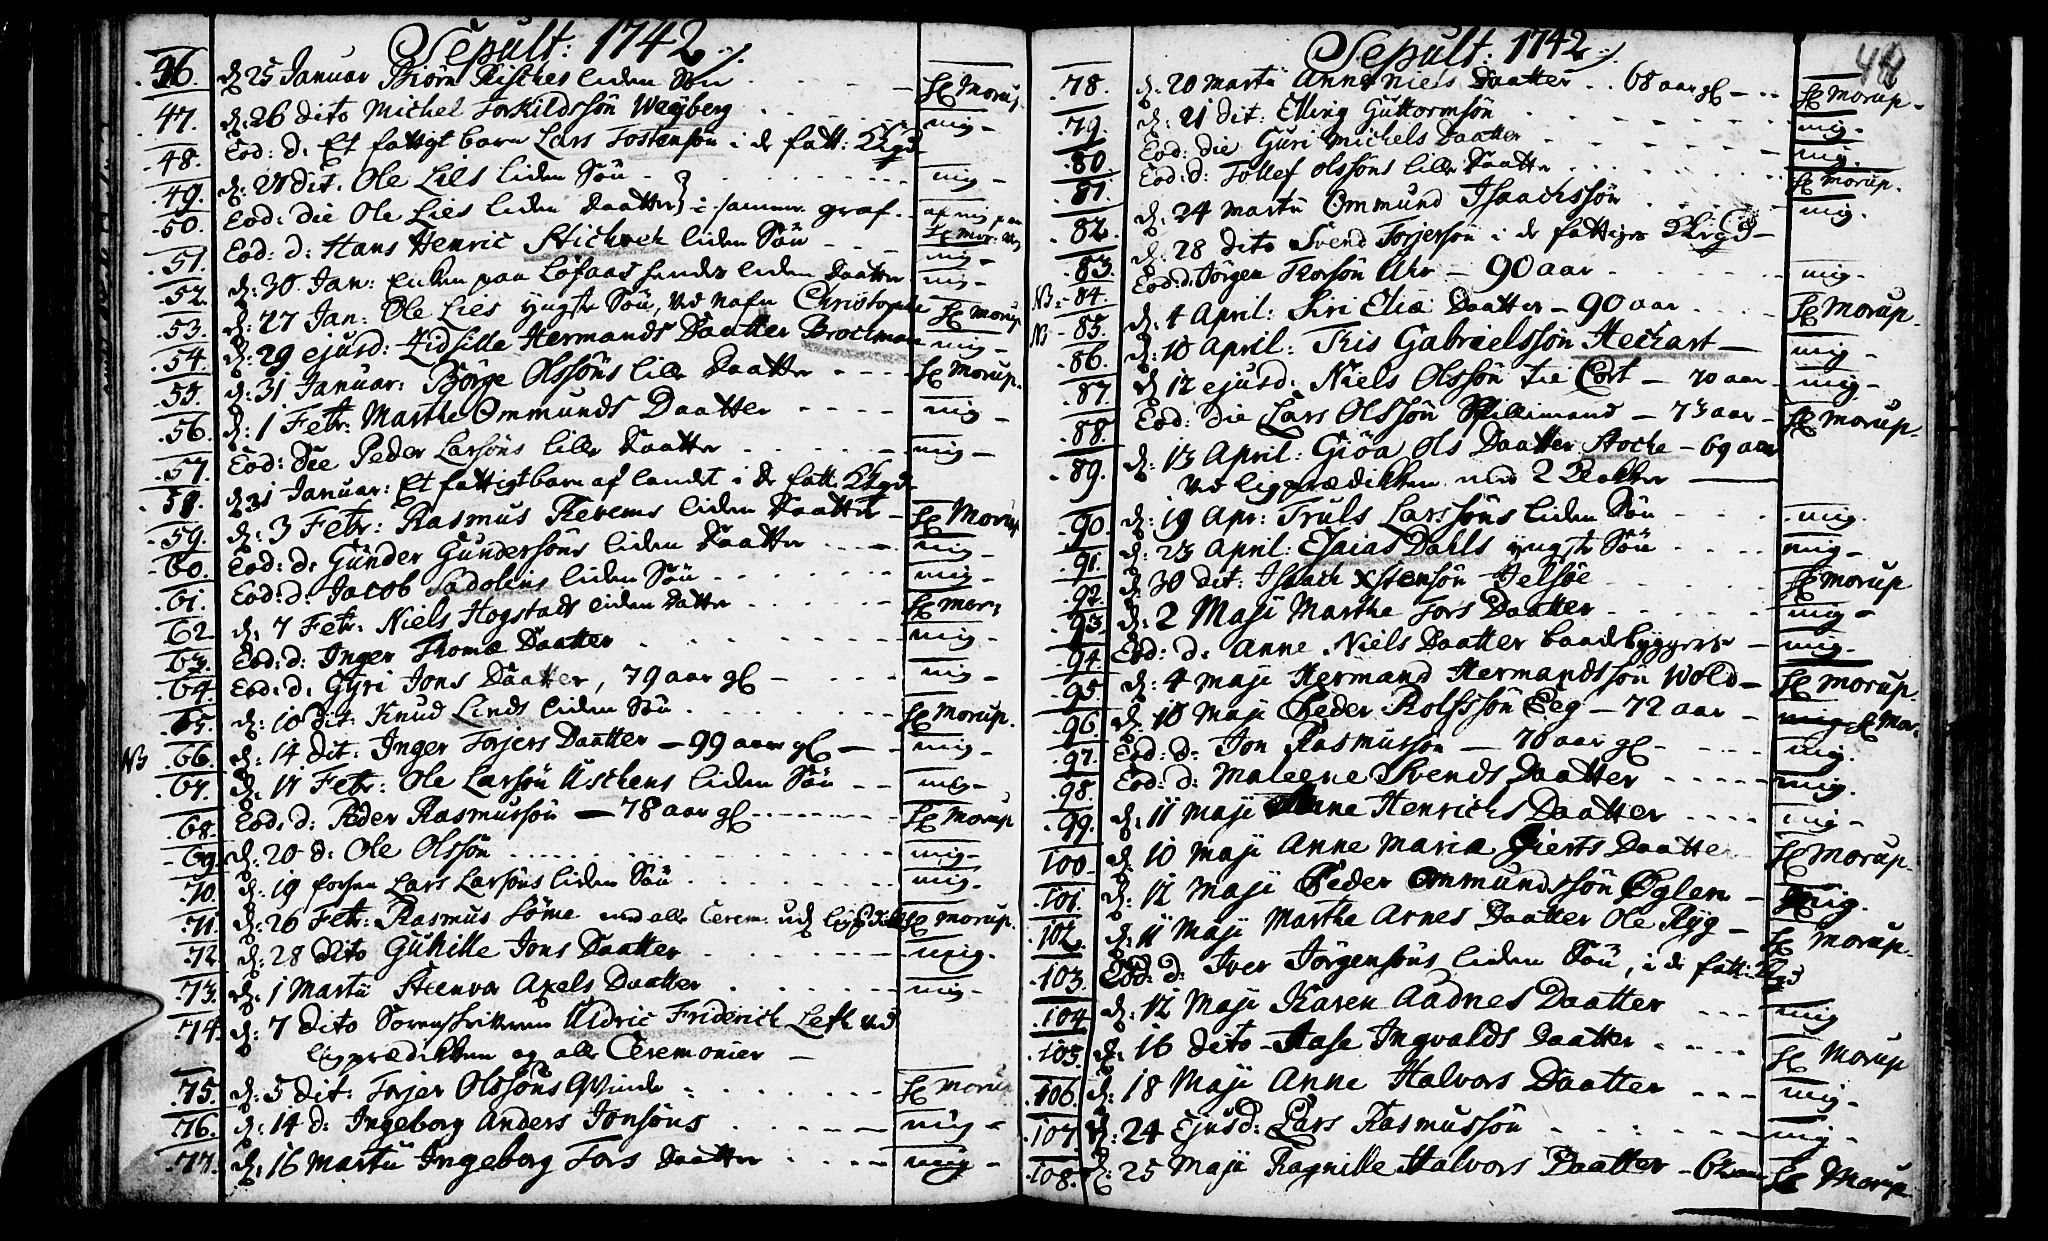 Sepult: 1742
46. d: 25 Januar Biørn Kisches liden Søn - Hr Morup.
47. d: 26 dito Michel Torkildssøn Wegberg - mig -
48. Eod: d: Et fattigt barn Lars Tostensøn i de fatt:
49. d: 27 dit. Ole Lies liden Søn - mig -
50. Eod: die Ole Lies liden Daatter i samme graf.
51. Eod: d: Hans Henric liden Søn - mig -
52. d: 30 Jan: Enken paa Lofaas hendes liden Daatter - mig -
53. d: 27 Jan: Ole Lies yngste Søn, ved nafn Christopher Hr Morup
54. d: 29 ejusd: Zidsille Hermands Daatter Brockman mig -
55. d: 31 Januar: Børge Olssøns lille Daatter - Hr Morup.
56. d: 1 Febr: Marthe Ommunds Daatter - mig -
57. Eod: die Peder Larsøns lille Daatter - mig -
58. d: 31 Januar: Et fattigt barn af landet i de fatt:
59. d: 3 Febr: Rasmus liden Daatter - Hr Morup
60. Eod: d: Gunder Gundersøns liden Daatter - mig -
61. Eod: d: Jacob Sadolins liden Søn - mig -
62. d: 7 Febr: Niels Hogstads liden Datter Hr Mor:
63. Eod: d: Inger Thomæ Daatter - mig -
64. Eod: d: Gyri Jons Daatter, 79 aar gl - mig -
65. d: 10 dit: Knud Linds liden Søn - Hr Morup.
NB 66. d: 14 dit: Inger Torjers Daatter - 99 aar gl - mig -
67. d: 17 Febr: Ole Larsøn Aschens liden Søn - mig -
68. Eod: d: Peder Rasmussøn - 78 aar gl - Hr Morup
69. d: 20 d: Ole Olssøn - mig -
70. d: 19 Lars Larsøns liden Søn - mig -
71. d: 26 Febr: Rasmus Søme med alle Cerem: Hr Morup.
72. d: 28 dito Guhille Jons Daatter - mig.
73. d: 1 Martii Steenvor Axels Daatter - mig -
74. d: 7 dito Sorenskriveren Uldric Friderich Leth ved
ligprædikken og alle Ceremonier -
75. d: 5 dit: Torjer Olssøns Qvinde - Hr Morup
76. d: 14 d: Ingeborg Anders Jonsøns - mig -
77. d: 16 Martii Ingeborg Tors Daatter - mig -
44
Sepult: 1742
78. d: 20 Martii Anne Niels Daatter - 68 aar gl - Hr Morup -
79. d: 21 dit: Elling Guttormsøn - mig -
80. Eod: die Guri Michels Daatter - mig.
81. Eod: d: Tollef Olssøns lille Daatter - Hr Morup.
82. d: 24 Martii Ommund Isaachssøn - mig.
83. d: 28 dito Svend Torjersøn i de fattiges
NB 84. Eod: d: Jørgen Thorsøn Uhr - 90 aar - mig -
NB 85. d: 4 April: Siri Eliæ Daatter - 90 aar - Hr Morup.
86. d: 10 April: Tris Gabrielssøn Heckart - mig -
87. d: 12 ejusd: Niels Olssøn - 70 aar - mig -
88. Eod: die Lars Olssøn - 73 aar - Hr Morup.
89. d: 13 April: Giøa Ols Daatter - 69 aar
ved ligprædikken med 2 Klokker
90. d: 19 Apr: Truls Larssøns liden Søn - mig.
91. d: 23 April: Esaias Dahls yngste Søn - mig -
92. d: 30 dit: Isaach Xstensøn Jelsøe - Hr Morup
93. d: 2 Maji Marthe Tors Daatter - mig -
94. Eod: d: Anne Niels Daatter baadbyggers - mig.
95. d: 4 Maji Hermand Hermandssøn Wold - Hr Morup.
96. d: 10 Maji Peder Rolfssøn Eeg - 72 aar - mig Hr Mor:
97. Eod: d: Jon Rasmussøn - 70 aar gl - mig.
98. Eod: d: Maleene Svends Daatter - mig.
99. d: 11 Maji Anne Henrichs Daatter - mig -
100. d: 10 Maji Anne Maria Gierts Daatter - Hr Morup.
101. d: 12 Maji Peder Ommundssøn - mig.
102. d: 11 Maji Marthe Arnes Daatter Ole Ryg - Hr Morup.
103. Eod: d: Iver Jørgensøns liden Søn, i de fatt:
104. d: 12 Maji Karen Aadnes Daatter - mig
105. d: 16 dito - Aase Ingvalds Daatter - Hr Morup
106. d: 18 Maji Anne Halvors Daatter - mig -
107. d: 24 Ejusd: Lars Rasmussøn - mig -
108. d: 25 Maji Ragnille Halvors Daatter - Hr Morup.